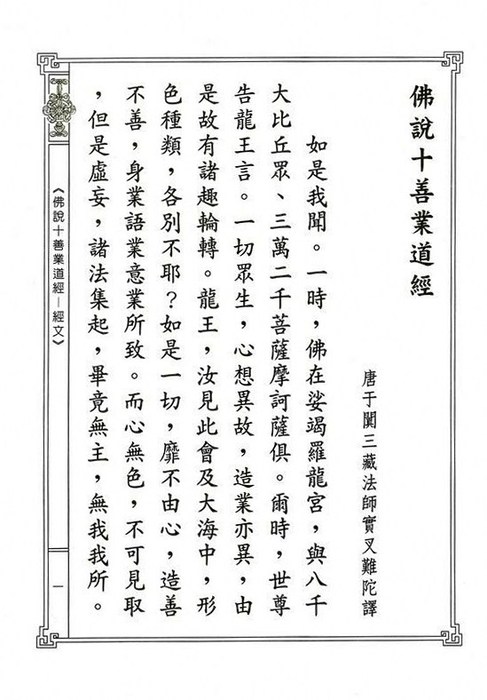 佛說十善業道經
唐于闐三藏法師實叉難陀譯
如是我聞。一時，佛在娑竭羅龍宮，與八千
大比丘眾、三萬二千菩薩摩訶薩俱。爾時，世尊
告龍王言。一切眾生，心想異故，造業亦異，由
是故有諸趣輪轉。龍王，汝見此會及大海中，形
色種類，各別不耶？如是一切，靡不由心，造善
不善，身業語業意業所致。而心無色，不可見取
，但是虛妄，諸法集起，畢竟無主，無我我所。
《佛說十善業道經－經文》
一